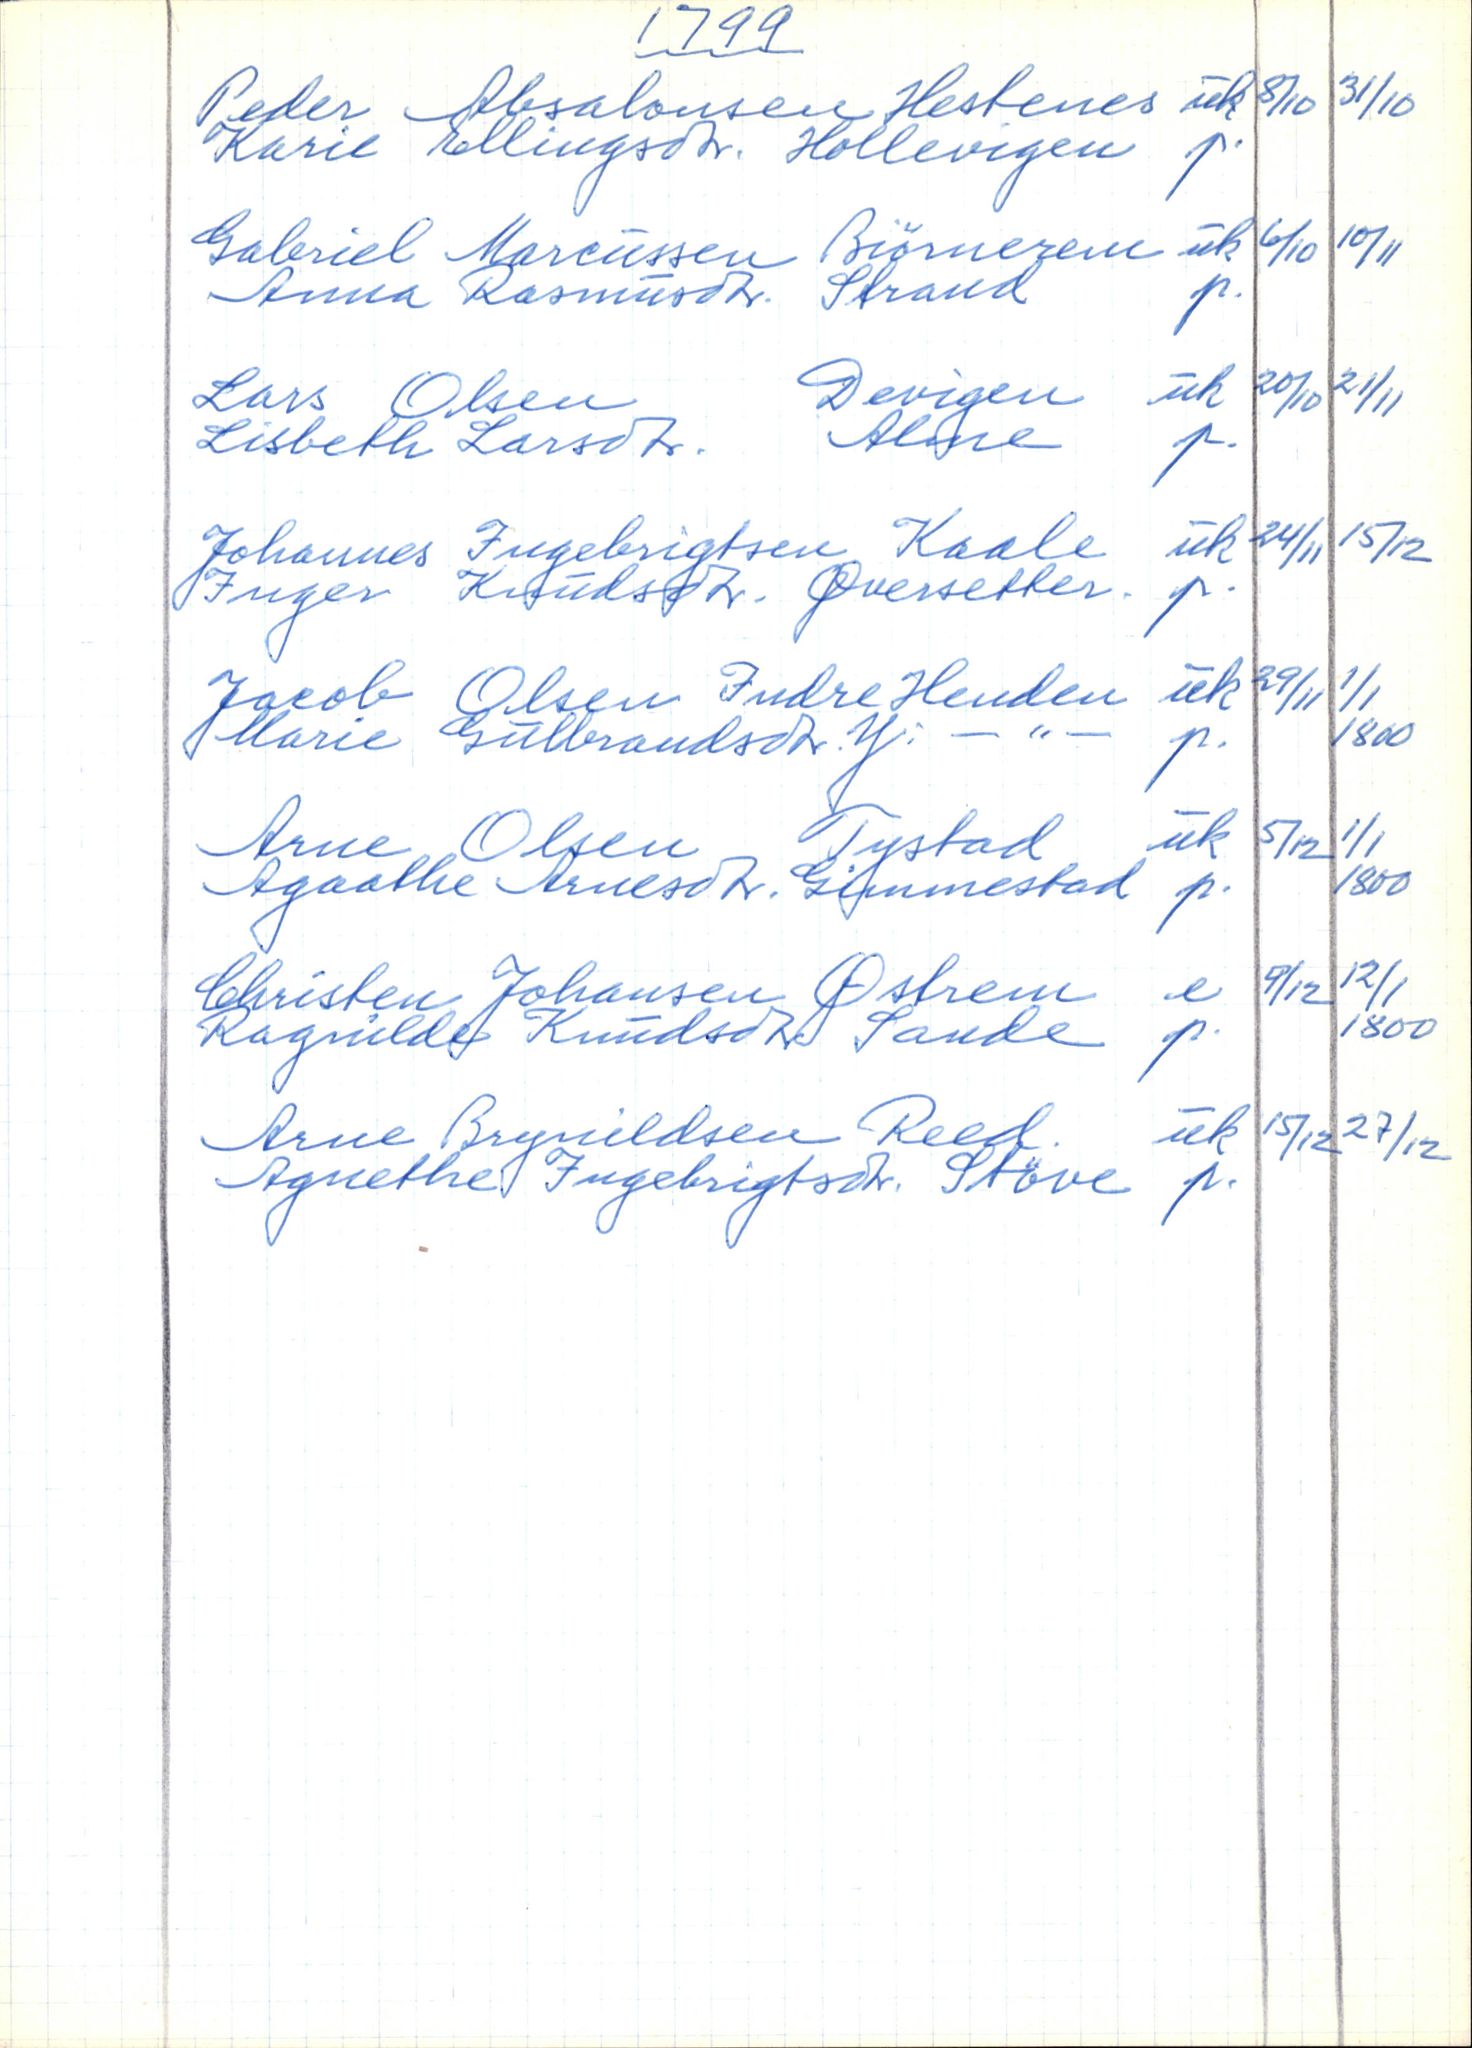 1799
Peder Absalonsen Hestenes ük 8/10 31/10
Karie Ellingsdtr. Hollevigen p.
Gabriel Marcüssen Biörnerem ük 6/10 10/11
Anna Rasmüsdtr. Strand p.
Lars Olsen Devigen ük 20/10 21/11
Lisbeth Larsdtr. Alme p.
Johannes Ingebrigtsen Kaale ük 24/11 15/12
Inger Knüdsdtr. Øversetter. p.
Jacob Olsen Indre Henden ük 29/11 1/1
Marie Gülbrandsdtr. Y: — " — p. 1800
Arne Olsen Tystad ük 5/12 1/1
Agaathe Arnesdtr. Gimmestad p. 1800
Christen Johansen Østrem e 9/12 12/1
Ragnilde Knüdsdtr. Sande p. 1800
Arne Brynildsen Reed. ük 15/12 27/12
Agnethe Ingebrigtsdtr. Stöve p.